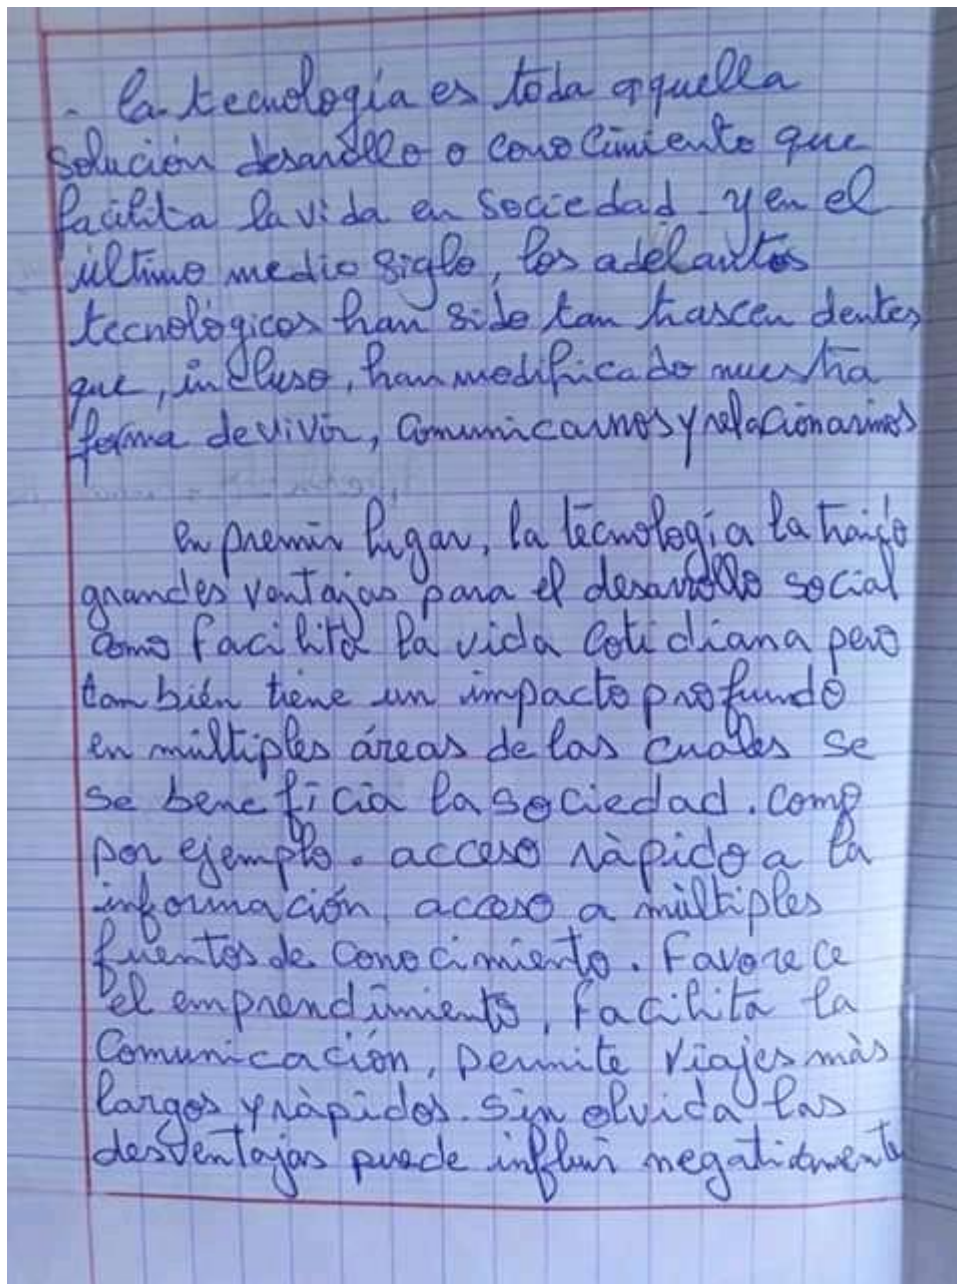 - la tecnología es toda aquella
solución desarollo o conocimiento que
facilita la vida en sociedad y en el
último medio siglo, los adelantos
tecnológicos han sido tan trascendentes,
que, incluso, han modificado nuestra
forma de vivir, comunicarnos y relacionarnos
en premir lugar, la tecnología la traido
grandes ventajas para el desarrollo social
como facilita la vida cotidiana pero
también tiene un impacto profundo
en múltiples áreas de las cuales se
se beneficia la sociedad. como
por ejemplo. acceso ràpido a la
información, acceso a mùltiples
fuentes de conocimiento. Favorece
el emprendimiento, facilita la
comunicación, permite viajes màs
largos y ràpidos. sin olvida las
desventajas puede influir negativamente